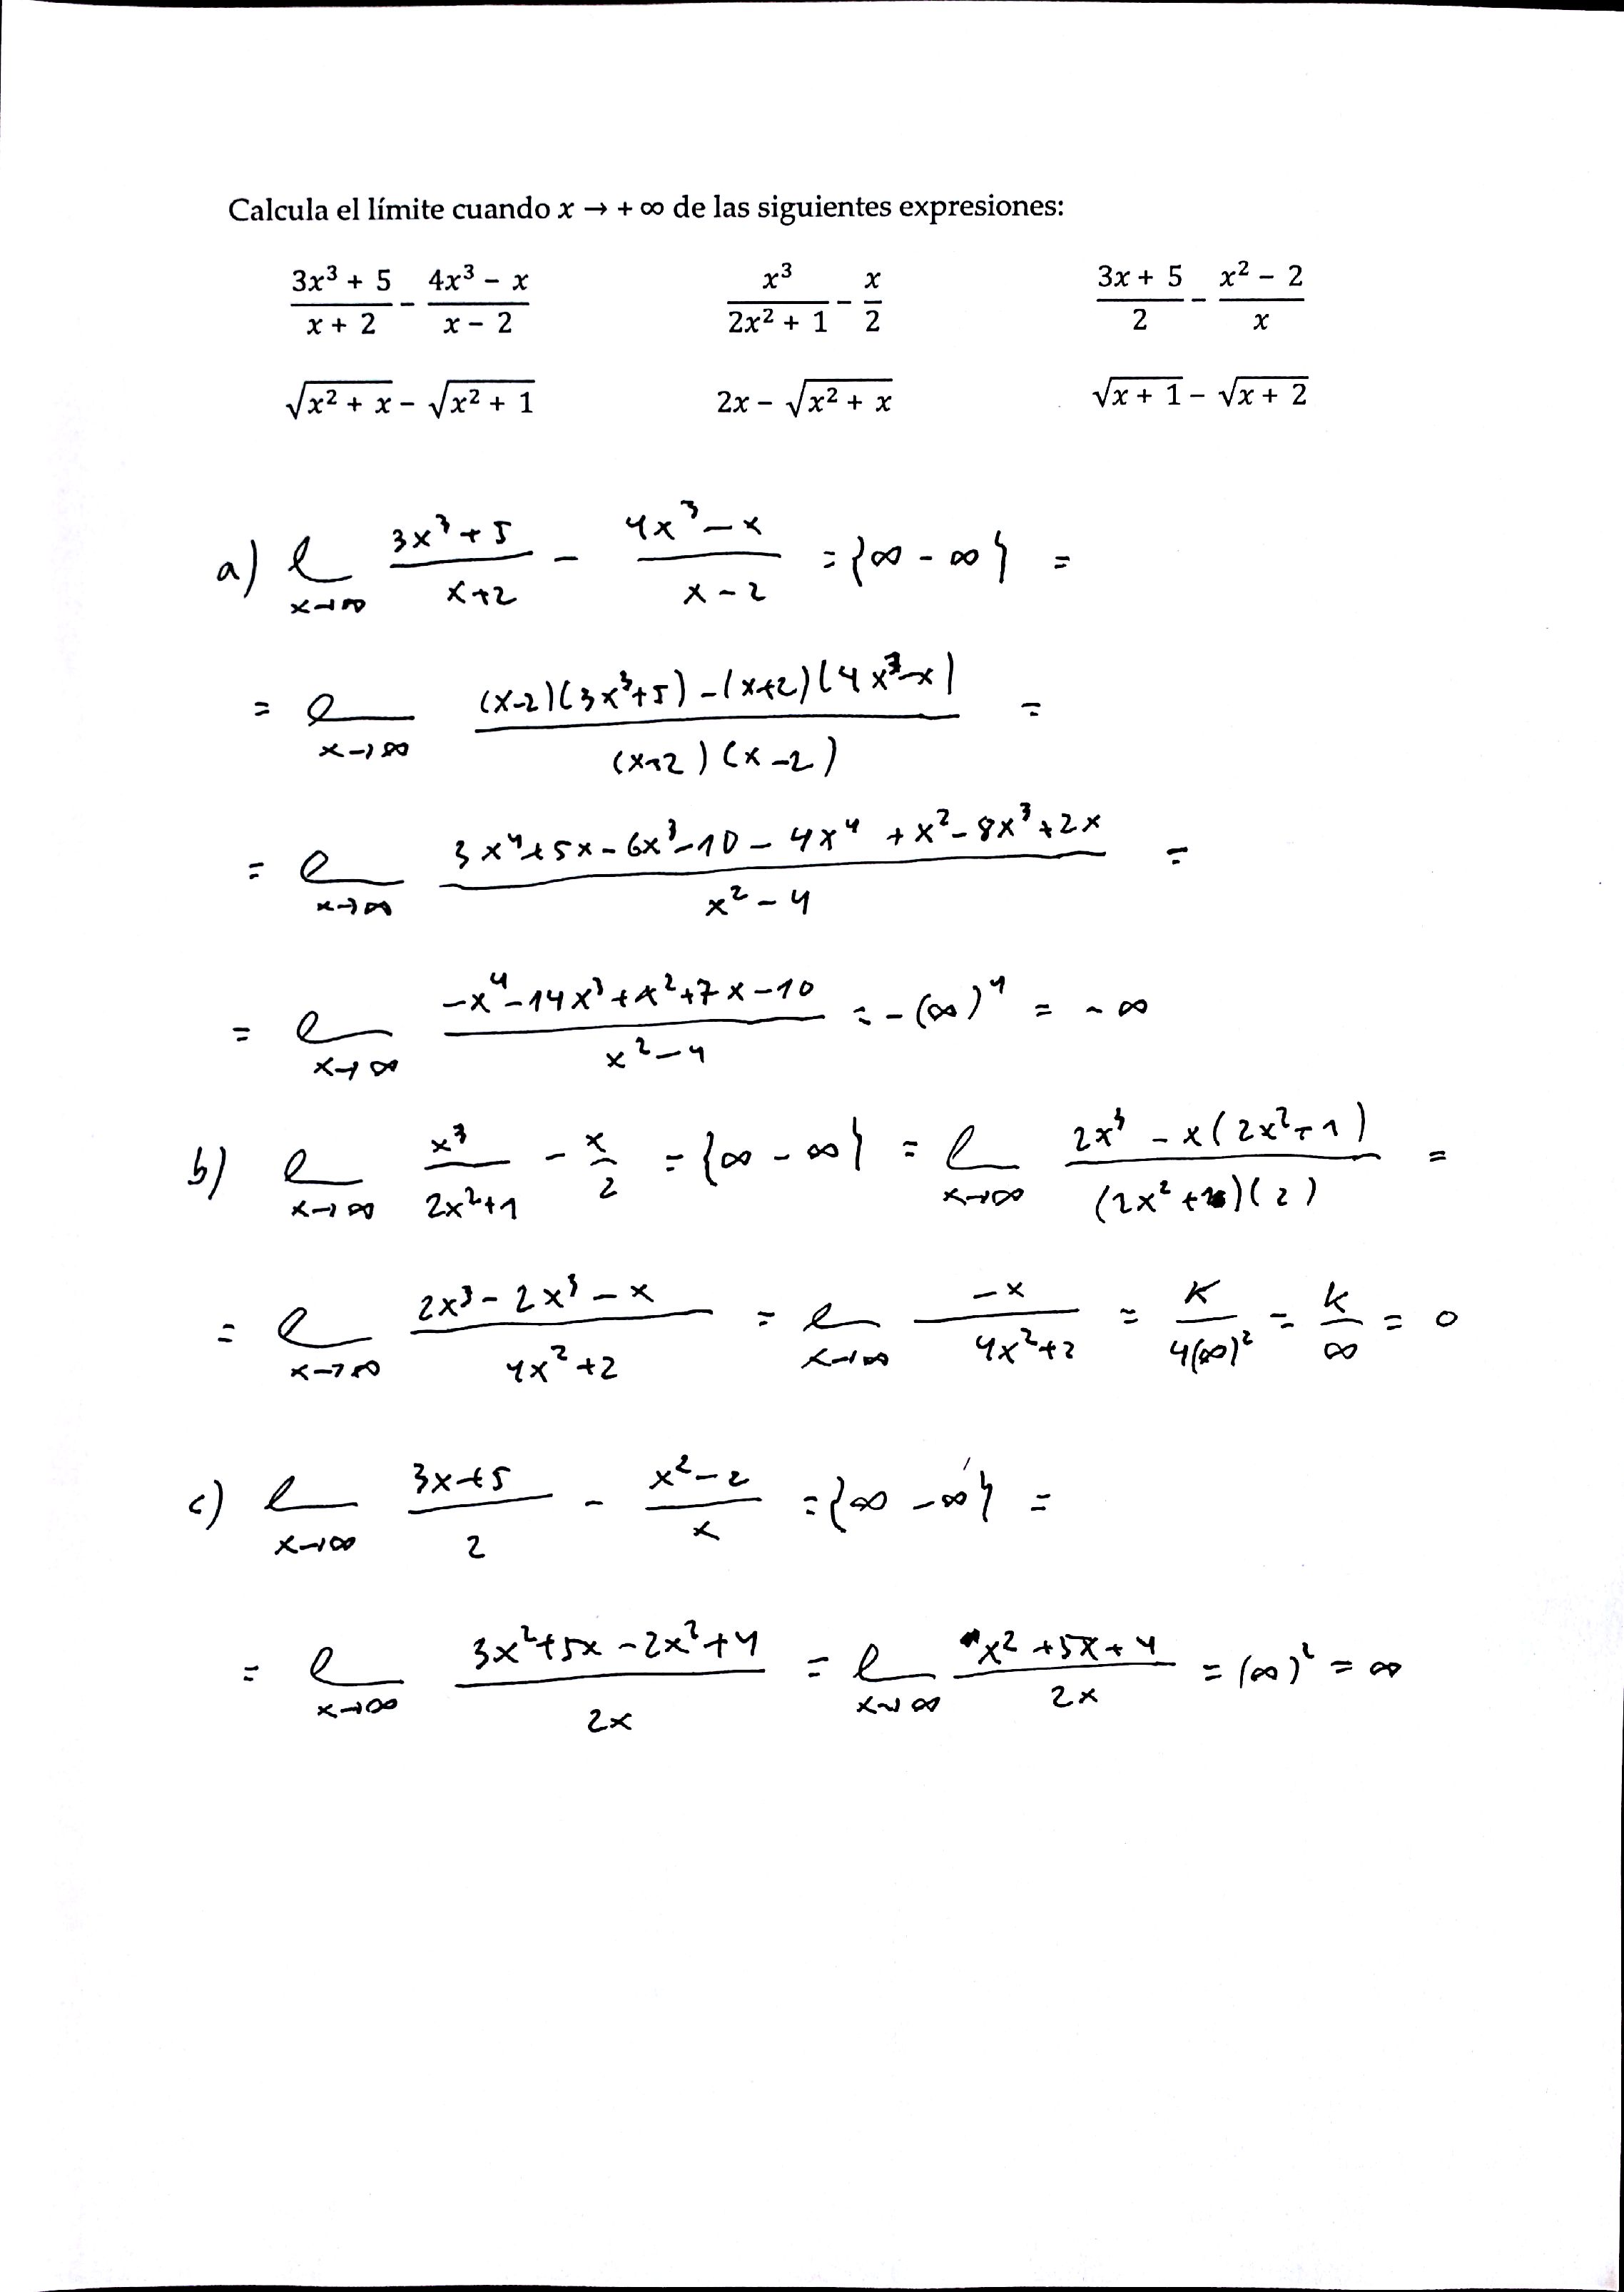 Calcula el límite cuando x → + ∞ de las siguientes expresiones:
(3x³ + 5)/(x + 2) − (4x³ − x)/(x − 2)    x³/(2x² + 1) − x/2    (3x + 5)/2 − (x² − 2)/x
√(x² + x) − √(x² + 1)    2x − √(x² + x)    √(x + 1) − √(x + 2)
a) l x→∞ (3x³+5)/(x+2) − (4x³−x)/(x−2) = {∞ − ∞} =
= l x→∞ ((x−2)(3x³+5) − (x+2)(4x³−x))/((x+2)(x−2)) =
= l x→∞ (3x⁴+5x−6x³−10−4x⁴+x²−8x³+2x)/(x²−4) =
= l x→∞ (−x⁴−14x³+x²+7x−10)/(x²−4) = −(∞)⁴ = −∞
b) l x→∞ x³/(2x²+1) − x/2 = {∞ − ∞} = l x→∞ (2x³ − x(2x²+1))/((2x²+1)(2)) =
= l x→∞ (2x³−2x³−x)/(4x²+2) = l x→∞ −x/(4x²+2) = K/4(∞)² = k/∞ = 0
c) l x→∞ (3x+5)/2 − (x²−2)/x = {∞ − ∞} =
= l x→∞ (3x²+5x−2x²+4)/2x = l x→∞ (x²+5x+4)/2x = (∞)² = ∞